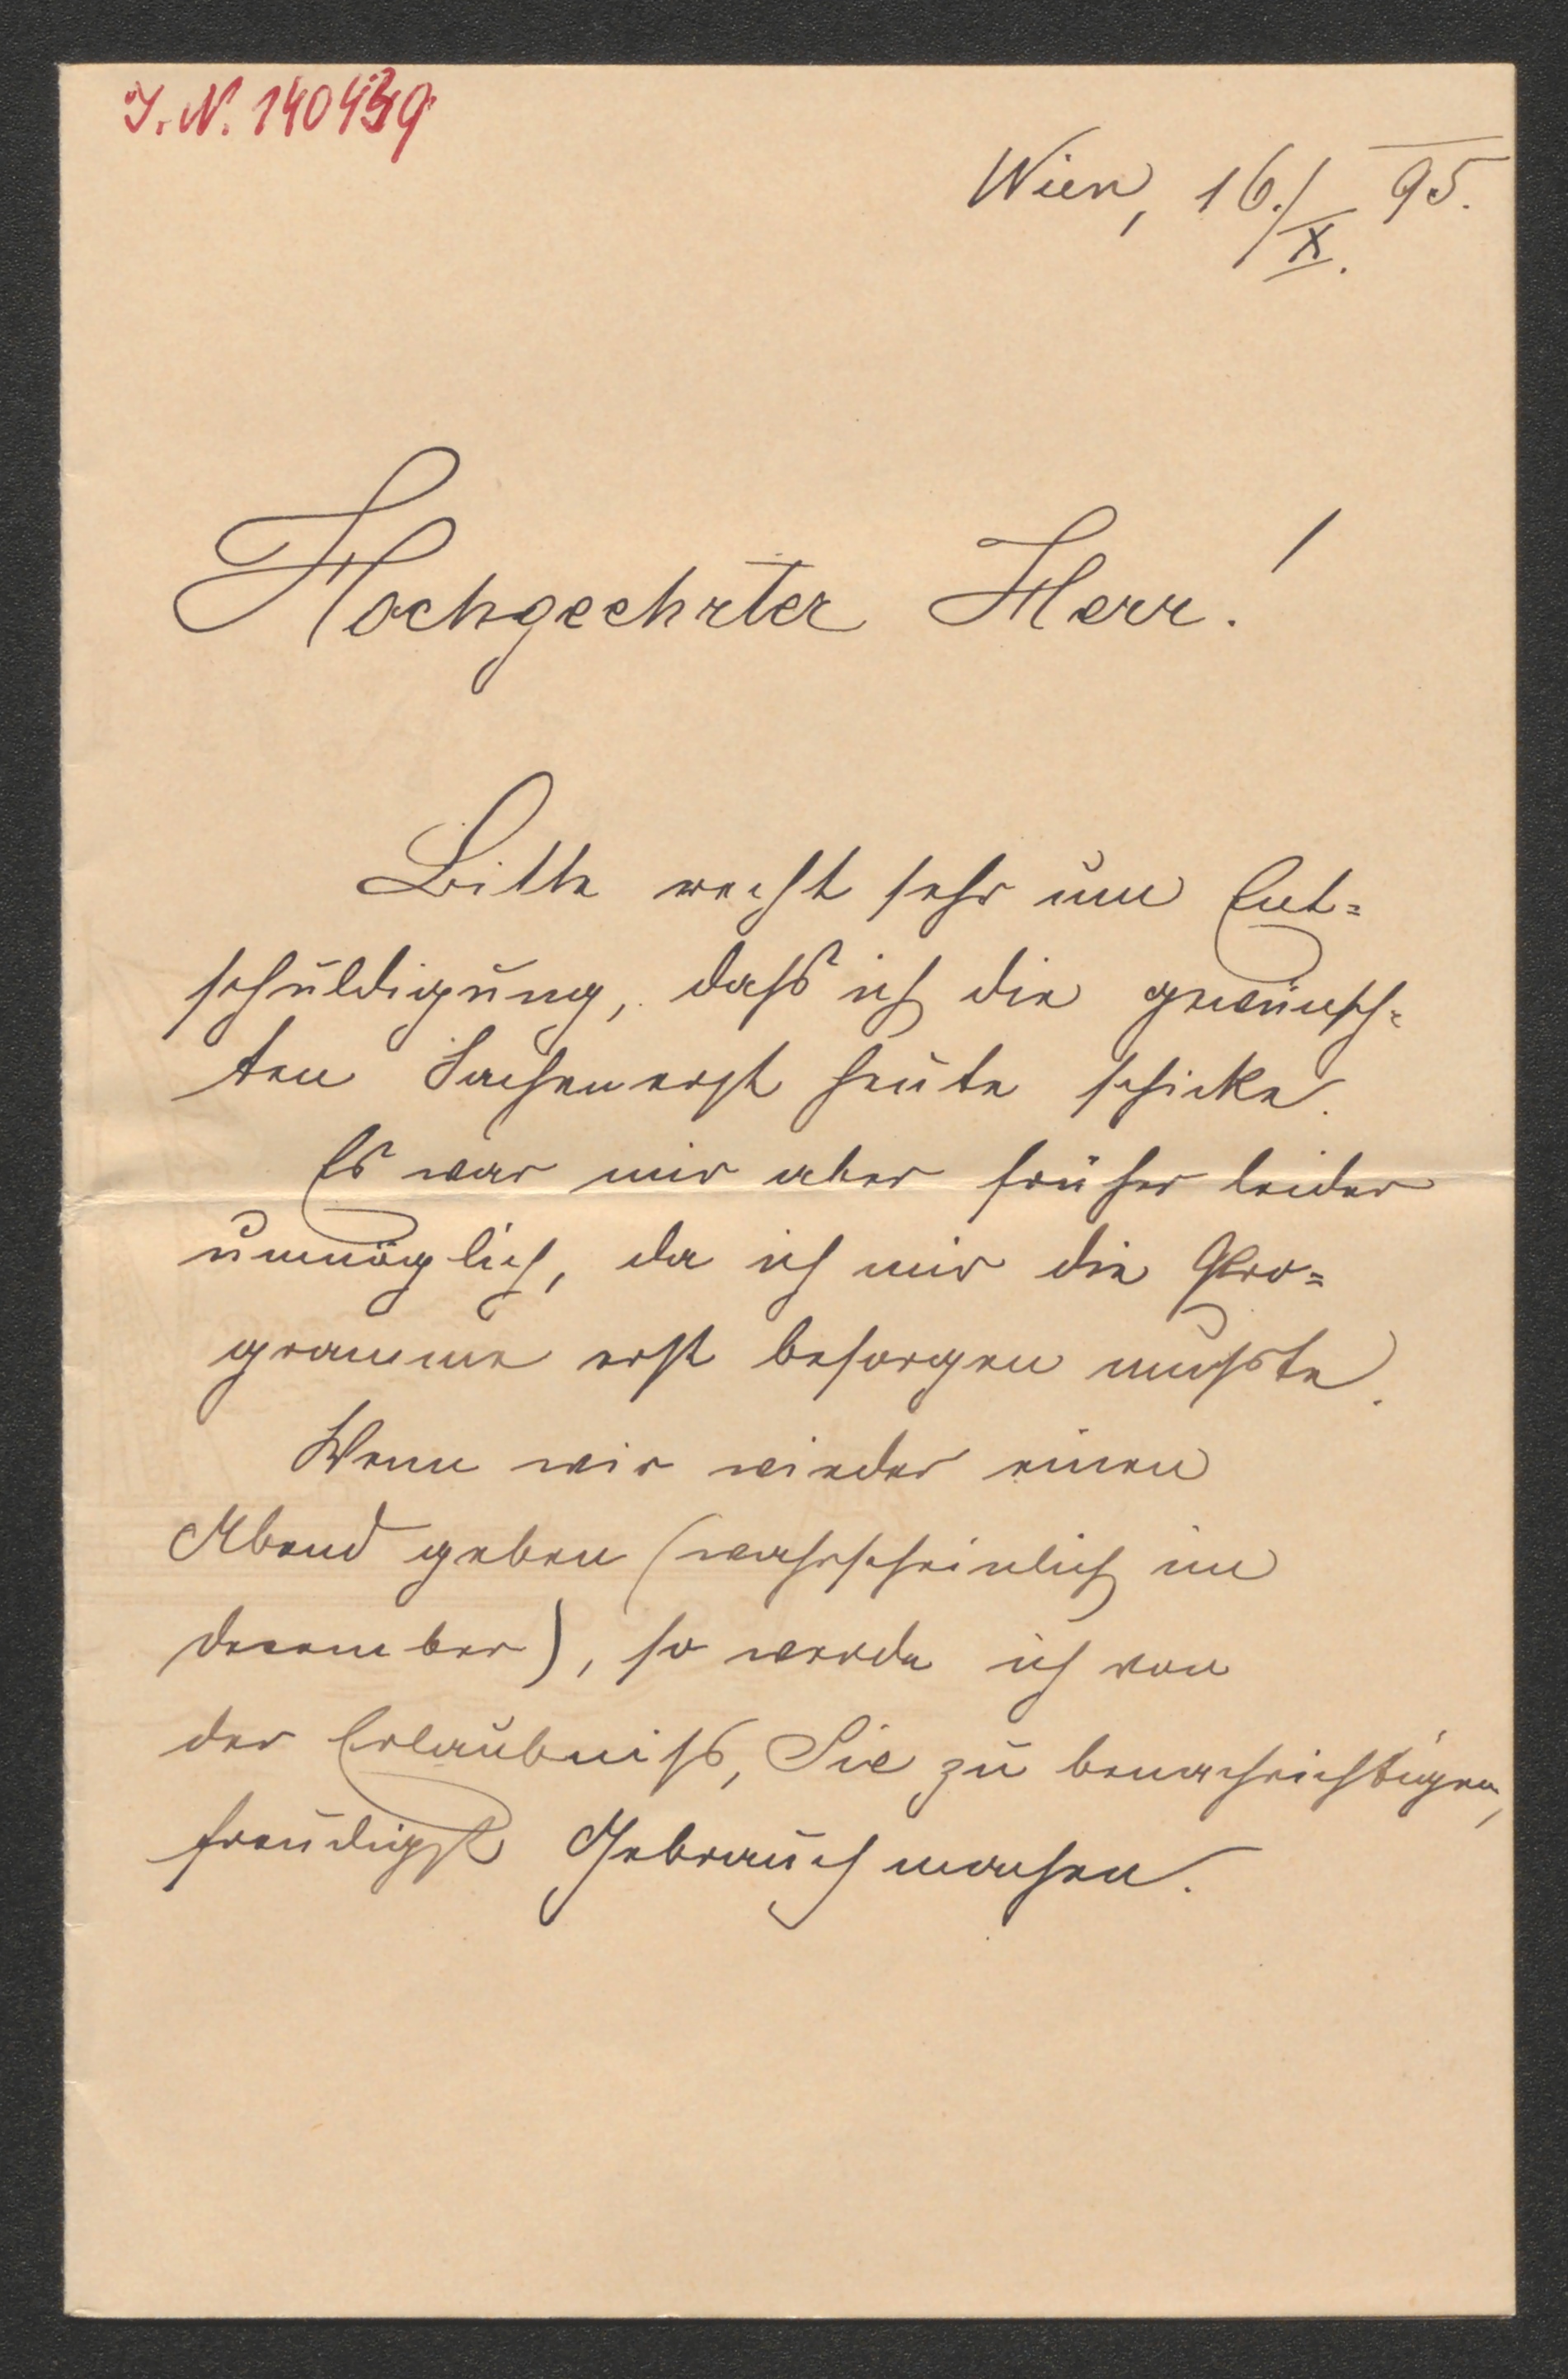 J.N. 140439
Wien, 16./X. 95.
Hochgeehrter Herr!
Bitte recht sehr um Ent=
schuldigung, dass ich die gewünsch=
ten Sachen erst heute schicke.
Es war mir aber früher leider
unmöglich, da ich mir die Pro=
gramme erst besorgen musste.
Wenn wir wieder einen
Abend geben (wahrscheinlich im
December), so werde ich von
der Erlaubniss, Sie zu benachrichtigen,
freudigst Gebrauch machen.